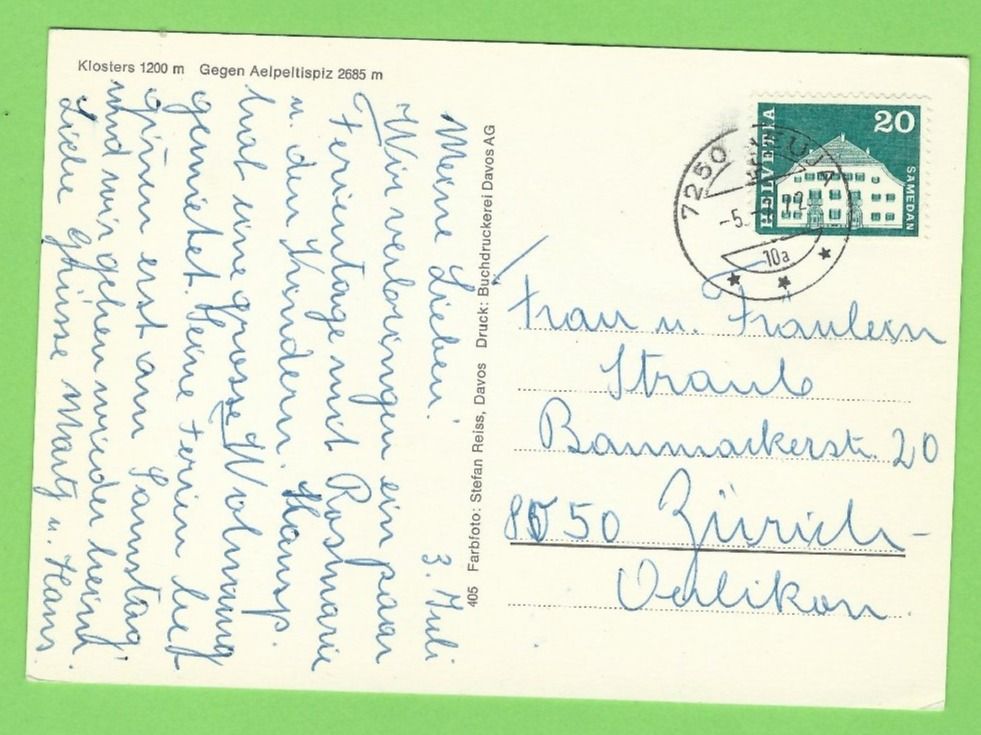 Klosters 1200 m Gegen Aelpeltispiz 2685 m
3. Juli
Meine Lieben!
Wir verbringen ein paar
Ferientage mit Rosmarie
u. den Kindern. Hansp.
hat eine grosse Wohnung
gemietet. Seine Ferien
grünen erst am Samstag
und wir gehen wieder heim.
Liebe Grüsse Marty u. Hans.
405 Farbfoto: Stefan Reiss, Davos Druck: Buchdruckerei Davos AG
HELVETIA
20
SAMEDAN
7250
-5.
10a
Frau u. Fräulein
Straub
Baumackerstr. 20
8050 Zürich-
Oerlikon.